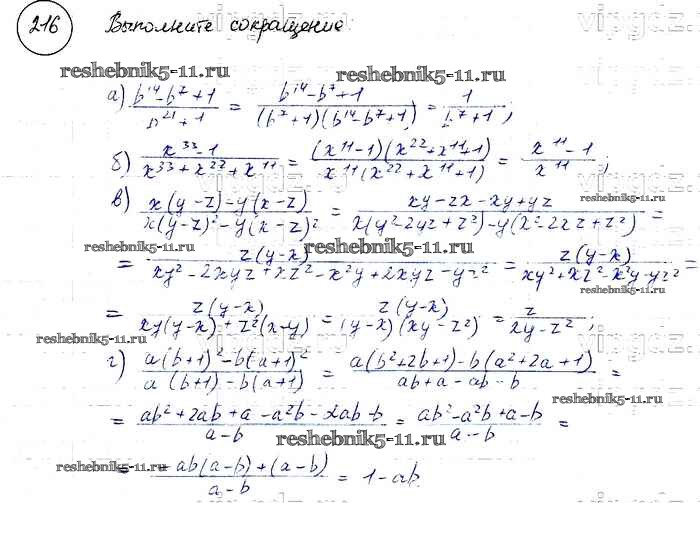 216 Выполните сокращение
vipgdz.ru
reshebnik5-11.ru reshebnik5-11.ru
а) (b^14 - b^7 + 1)/(b^21 + 1) = (b^14 - b^7 + 1)/((b^7 + 1)(b^14 - b^7 + 1)) = 1/(b^7 + 1);
б) (x^33 - 1)/(x^33 + x^22 + x^11) = ((x^11 - 1)(x^22 + x^11 + 1))/(x^11(x^22 + x^11 + 1)) = (x^11 - 1)/x^11;
в) (x(y - z) - y(x - z))/(x(y - z)^2 - y(x - z)^2) = (xy - zx - xy + yz)/(x(y^2 - 2yz + z^2) - y(x^2 - 2xz + z^2)) =
reshebnik5-11.ru
reshebnik5-11.ru reshebnik5-11.ru
= z(y - x)/(xy^2 - 2xyz + xz^2 - x^2y + 2xyz - yz^2) = z(y - x)/(xy^2 + xz^2 - x^2y - yz^2) =
reshebnik5-11.ru
= z(y - x)/(xy(y - x) + z^2(x - y)) = z(y - x)/((y - x)(xy - z^2)) = z/(xy - z^2);
reshebnik5-11.ru
г) (a(b + 1)^2 - b(a + 1)^2)/(a(b + 1) - b(a + 1)) = (a(b^2 + 2b + 1) - b(a^2 + 2a + 1))/(ab + a - ab - b) =
reshebnik5-11.ru
= (ab^2 + 2ab + a - a^2b - 2ab - b)/(a - b) = (ab^2 - a^2b + a - b)/(a - b) =
reshebnik5-11.ru
reshebnik5-11.ru reshebnik5-11.ru
= (-ab(a - b) + (a - b))/(a - b) = 1 - ab.
vipgdz.ru